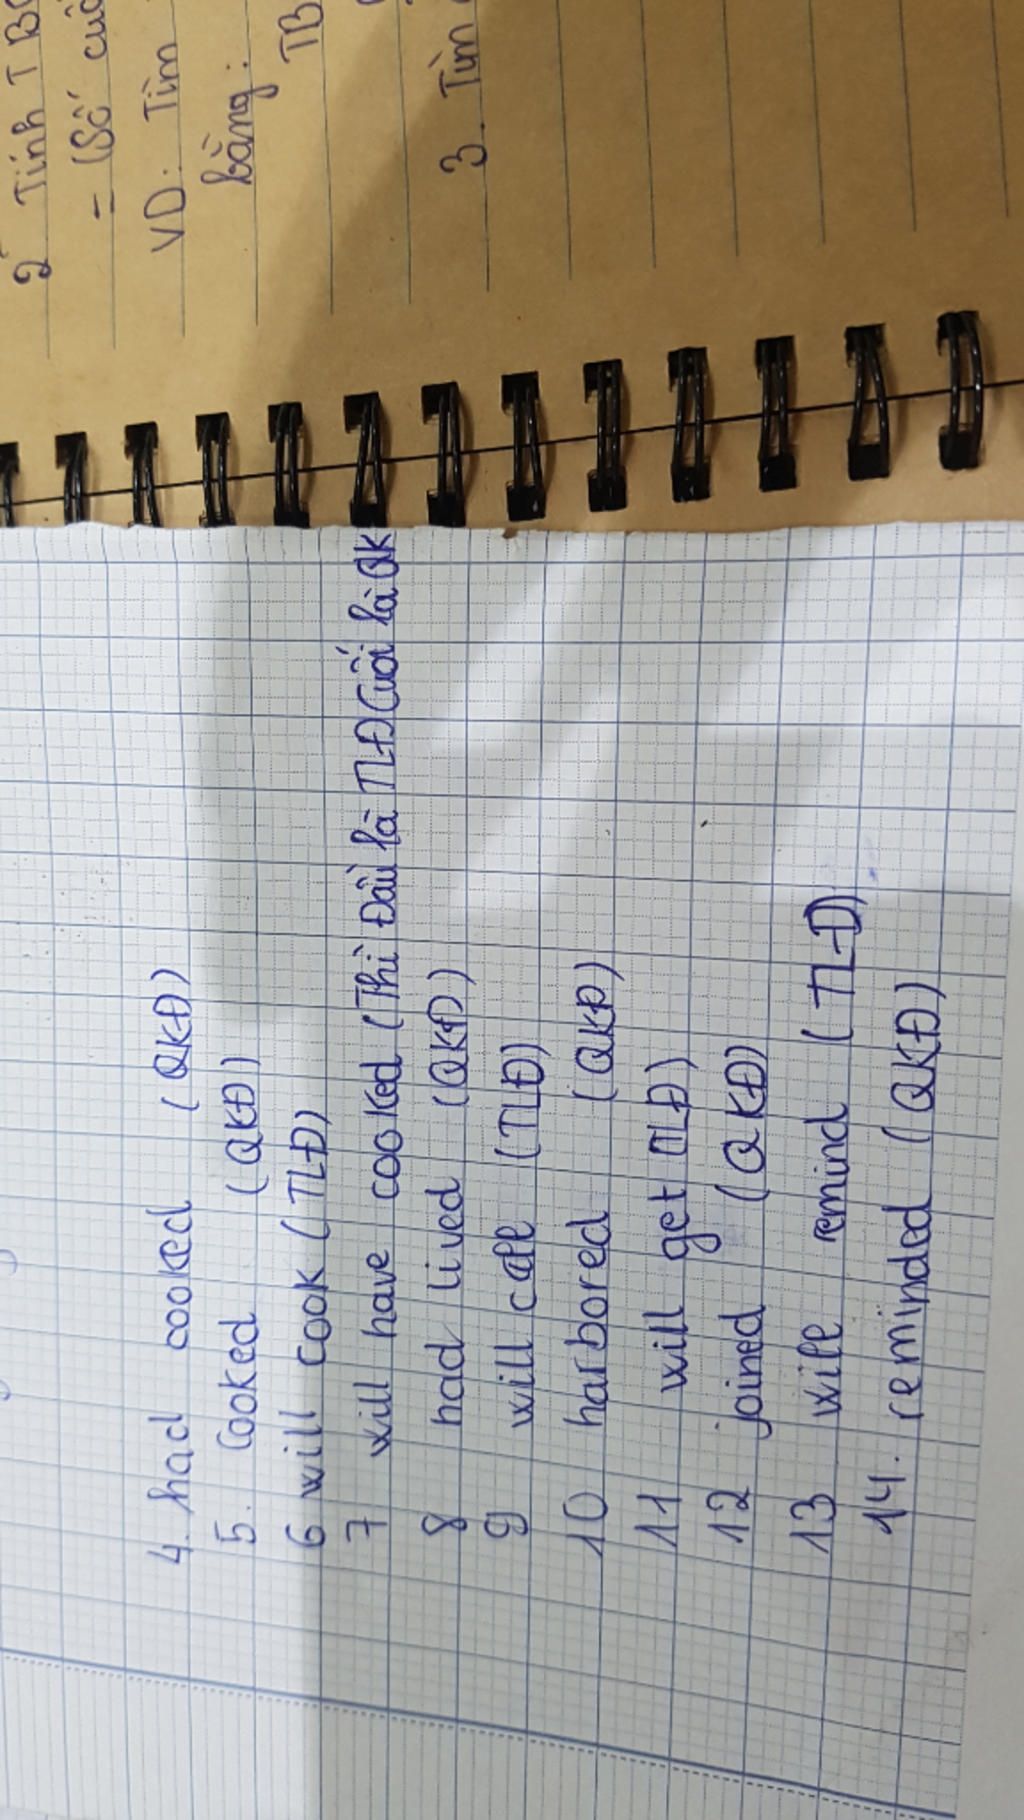 2 Tính TB
= (Số cuố
VD: Tìm
bằng:
TB
3. Tìm
4. had cooked (QKĐ)
5. cooked (QKĐ)
6 will cook (TLĐ)
7 will have cooked (Thì Đầu là TLĐ Cuối là QK
8 had lived (QKĐ)
9 will call (TLĐ)
10 harbored (QKĐ)
11 will get (TLĐ)
12 joined (QKĐ)
13 will remind (TLĐ)
14. reminded (QKĐ)